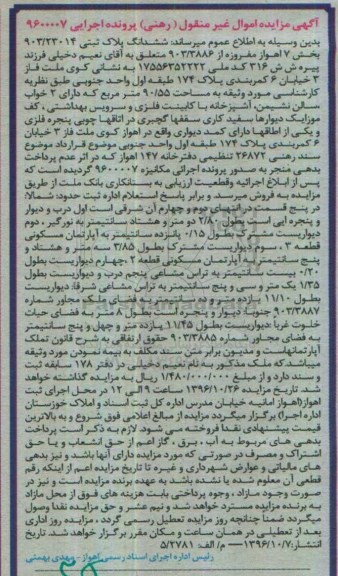 آگهی مزایده اموال غیر منقول (رهنی) پرونده اجرایی ۹۶۰۰۰۰۷
بدین وسیله به اطلاع عموم میرساند: ششدانگ پلاک ثبتی ۹۰۳/۲۳۰۱۴
بخش ۷ اهواز مفروزه از ۹۰۳/۳۸۸۶ متعلق به آقای نعیم دخیلی فرزند
پیره ش ش ۳۱۶ کد ملی ۱۷۵۵۶۳۵۲۲۲۲ به نشانی کوی ملت فاز
۳ خیابان ۶ کمربندی پلاک ۱۷۴ طبقه اول واحد جنوبی طبق نظریه
کارشناسی مورد وثیقه به مساحت ۹۰/۵۵ متر مربع که دارای ۲ خواب
،سالن نشیمن، آشپزخانه با کابینت فلزی و سرویس بهداشتی ، کف
موزاییک دیوارها سفید کاری سقفها گچبری در اتاقها چوبی پنجره فلزی
و یکی از اطاقها دارای کمد دیواری واقع در اهواز کوی ملت فاز ۳ خیابان
۶ کمربندی پلاک ۱۷۴ طبقه اول واحد جنوبی موضوع قرارداد موضوع
سند رهنی ۲۶۸۷۲ تنظیمی دفترخانه ۱۴۷ اهواز که در اثر عدم پرداخت
بدهی منجر به صدور پرونده اجرائی مکانیزه ۹۶۰۰۰۰۷ گردیده است که
پس از ابلاغ اجرائیه وقطعیت ارزیابی به بستانکاری بانک ملت از طریق
مزایده به فروش میرسد و برابر پاسخ استعلام اداره ثبت حدود: شمالا:
در پنج قسمت در انتهای دوم و چهارم آن شرقی است اول درب و دیوار
و پنجره ایی است بطول ۲/۸۰ دو متر و هشتاد سانتیمتر به نورگیر ، دوم
دیواریست مشترک بطول ۰/۱۵ پانزده سانتیمتر به آپارتمان مسکونی
قطعه ۳ ،سوم دیواریست مشترک بطول ۳/۸۵ سه متر و هشتاد و
پنج سانتیمتر به آپارتمان مسکونی قطعه ۲ ،چهارم دیواریست بطول
۰/۲۰ بیست سانتیمتر به تراس مشاعی پنجم درب و دیواریست بطول
۱/۳۵ یک متر و سی و پنج سانتیمتر به تراس مشاعی شرقا: دیواریست
بطول ۱۱/۱۰ یازده متر و ده سانتیمتر به فضای ملک مجاور شماره
۹۰۳/۳۸۸۷ جنوبا: دیوار و پنجره است بطول ۸ متر به فضای حیات
خلوت غربا: دیواریست بطول ۱۱/۴۵ یازده متر و چهل و پنج سانتیمتر
به فضای مجاور شماره ۹۰۳/۳۸۸۵ حقوق ارتفاقی به شرح قانون تملک
آپارتمانهاست و مدیون برابر متن سند مکلف به بیمه نمودن مورد وثیقه
میباشد که ملک مذکور به نام نعیم دخیلی در دفتر ۱۷۸ سابقه ثبت
و سند دارد و از مبلغ ۱/۴۸۰/۰۰۰/۰۰۰ ریال به مزایده گذاشته خواهد
شد. تاریخ مزایده ۱۳۹۶/۱۰/۲۶ ساعت ۹ الی ۱۲ در محل اجرای ثبت
اهواز(اهواز امانیه خیابان مدرس اداره کل ثبت اسناد و املاک خوزستان
اداره اجرا) برگزار میگردد مزایده از مبالغ اعلامی فوق شروع و به بالاترین
قیمت پیشنهادی نقدا فروخته می شود. لازم به ذکر است پرداخت
بدهی های مربوط به آب ، برق ، گاز اعم از حق انشعاب و یا حق
اشتراک و مصرف در صورتی که مورد مزایده دارای آنها باشد و نیز بدهی
های مالیاتی و عوارض شهرداری و غیره تا تاریخ مزایده اعم از اینکه رقم
قطعی آن معلوم شده یا نشده باشد به عهده برنده مزایده است و نیز در
صورت وجود مازاد ، وجوه پرداختی بابت هزینه های فوق از محل مازاد
به برنده مزایده مسترد خواهد شد و نیم عشر و حق مزایده نقدا وصول
میگردد ضمنا چنانچه روز مزایده تعطیل رسمی گردد ، مزایده روز اداری
بعد از تعطیلی در همان ساعت و مکان مقرر برگزار خواهد شد. تاریخ
انتشار:۱۳۹۶/۱۰/۷ – م/الف ۵/۲۷۸۱
رئیس اداره اجرای اسناد رسمی اهواز-مهدی بهمئی